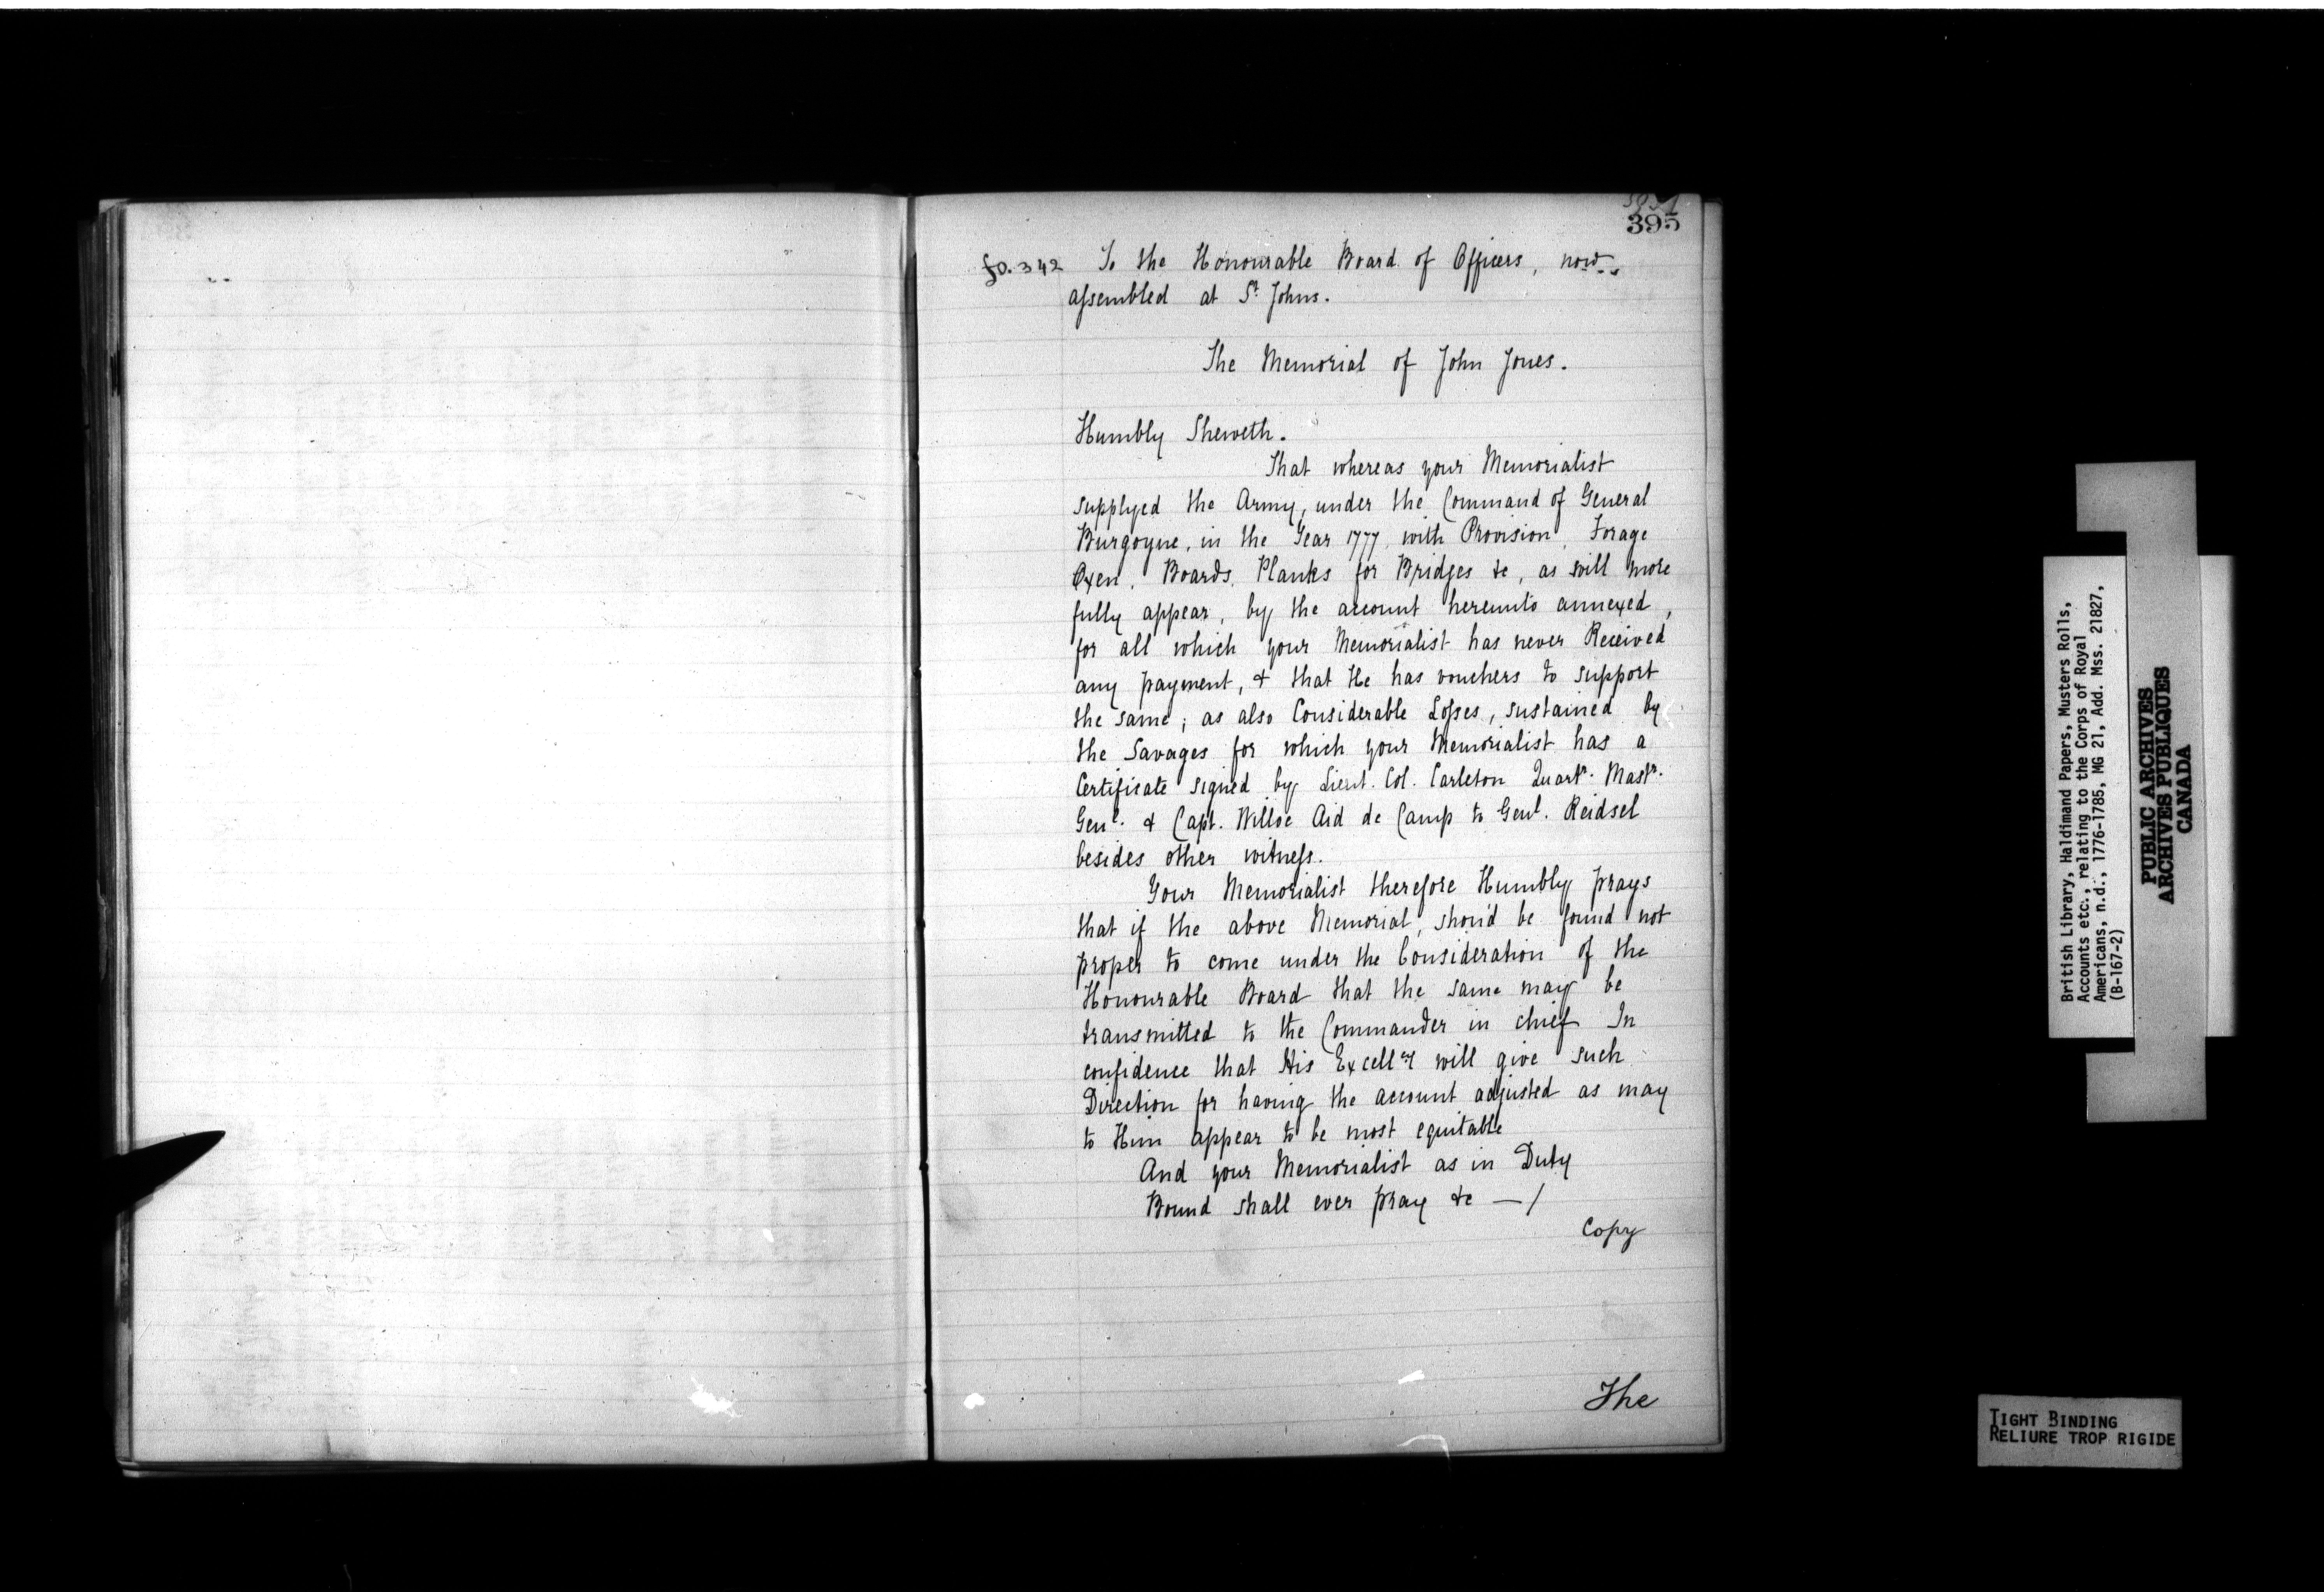 395
fo. 342 To the Honourable Board of Officers, now
assembled at St. Johns.
The Memorial of John Jones.
Humbly Sheweth.
That whereas your Memorialist
supplyed the Army, under the Command of General
Burgoyne, in the Year 1777, with Provision, Forage
Oxen, Boards, Planks for Bridges &c, as will more
fully appear, by the account hereunto annexed,
for all which your Memorialist has never Received
any payment, & that He has vouchers to support
the same; as also Considerable Losses, sustained by
the Savages for which your Memorialist has a
Certificate signed by Lieut. Col. Carleton Quartr. Mastr.
Genl. & Capt. Willoe Aid de Camp to Genl. Reidsel
besides other witness.
Your Memorialist therefore Humbly prays
that if the above Memorial, shou'd be found not
proper to come under the Consideration of the
Honourable Board that the same may be
transmitted to the Commander in chief In
confidence that His Excellcy will give such
Direction for having the account adjusted as may
to Him appear to be most equitable
And your Memorialist as in Duty
Bound shall ever pray &c — /
Copy
The
British Library, Haldimand Papers, Musters Rolls,
Accounts etc., relating to the Corps of Royal
Americans, n.d., 1776-1785, MG 21, Add. Mss. 21827,
(B-167-2)
PUBLIC ARCHIVES
ARCHIVES PUBLIQUES
CANADA
TIGHT BINDING
RELIURE TROP RIGIDE